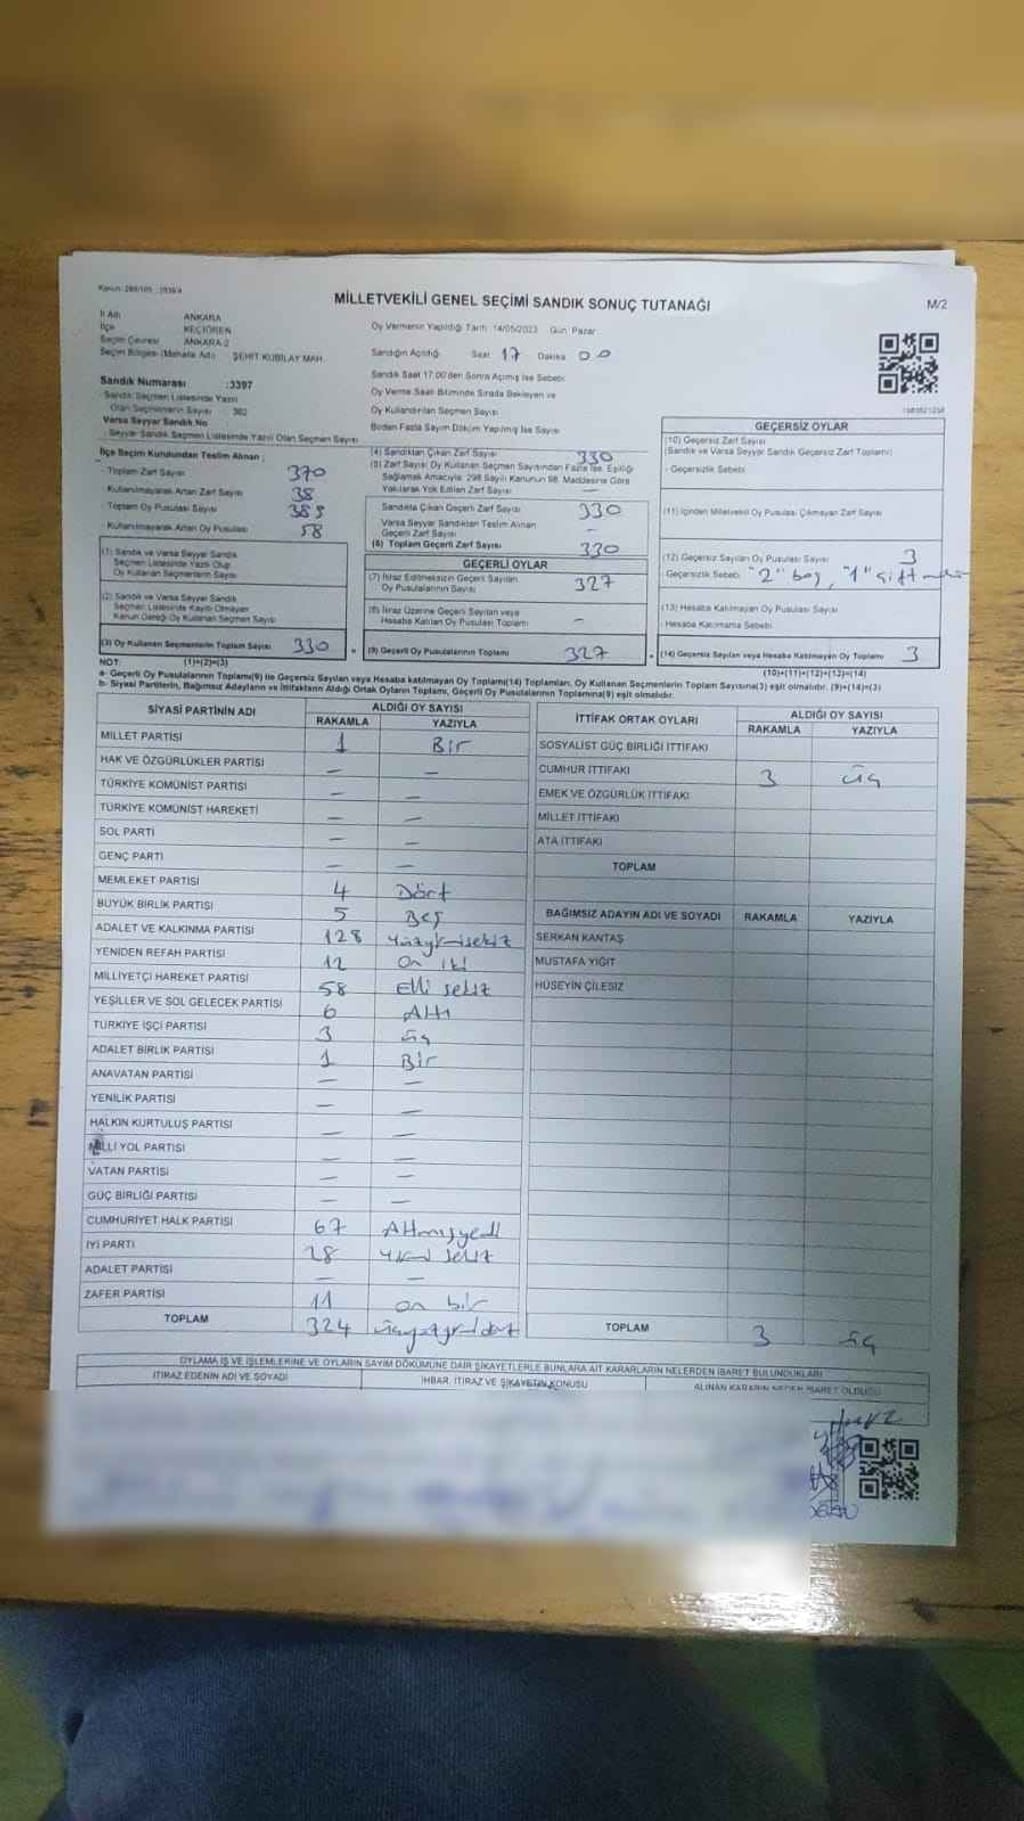 MİLLETVEKİLİ GENEL SEÇİMİ SANDIK SONUÇ TUTANAĞI
M/2
İl Adı ANKARA
İlçe KEÇİÖREN
Seçim Çevresi ANKARA 2
Seçim Bölgesi (Mahalle Adı) ŞEHİT KUBİLAY MAH.
Oy Vermenin Yapıldığı Tarih: 14/05/2023 Gün: Pazar
Sandığın Açıldığı Saat 17 Dakika 00
Sandık Saat 17:00'den Sonra Açılmış İse Sebebi
Oy Verme Saati Bitiminde Sırada Bekleyen ve
Oy Kullandırılan Seçmen Sayısı
Birden Fazla Sayım Döküm Yapılmış İse Sayısı
Sandık Numarası :3397
Sandık Seçmen Listesinde Yazılı
Olan Seçmenlerin Sayısı
Varsa Seyyar Sandık No
Seyyar Sandık Seçmen Listesinde Yazılı Olan Seçmen Sayısı
İlçe Seçim Kurulundan Teslim Alınan ;
- Toplam Zarf Sayısı 370
- Kullanılmayarak Artan Zarf Sayısı 38
- Toplam Oy Pusulası Sayısı
- Kullanılmayarak Artan Oy Pusulası 58
(1) Sandık ve Varsa Seyyar Sandık
Seçmen Listesinde Yazılı Olup
Oy Kullanan Seçmenlerin Sayısı
(2) Sandık ve Varsa Seyyar Sandık
Seçmen Listesinde Kayıtlı Olmayan
Kanun Gereği Oy Kullanan Seçmen Sayısı
(3) Oy Kullanan Seçmenlerin Toplam Sayısı 330
(4) Sandıktan Çıkan Zarf Sayısı 330
(5) Zarf Sayısı Oy Kullanan Seçmen Sayısından Fazla İse, Eşitliği
Sağlamak Amacıyla, 298 Sayılı Kanunun 98. Maddesine Göre
Yakılarak Yok Edilen Zarf Sayısı —
Sandıkta Çıkan Geçerli Zarf Sayısı 330
Varsa Seyyar Sandıktan Teslim Alınan
Geçerli Zarf Sayısı -
(6) Toplam Geçerli Zarf Sayısı 330
GEÇERLİ OYLAR
(7) İtiraz Edilmeksizin Geçerli Sayılan
Oy Pusulalarının Sayısı 327
(8) İtiraz Üzerine Geçerli Sayılan veya
Hesaba Katılan Oy Pusulası Toplamı -
= (9) Geçerli Oy Pusulalarının Toplamı 327
GEÇERSİZ OYLAR
(10) Geçersiz Zarf Sayısı
(Sandık ve Varsa Seyyar Sandık Geçersiz Zarf Toplamı)
- Geçersizlik Sebebi
(11) İçinden Milletvekili Oy Pusulası Çıkmayan Zarf Sayısı
(12) Geçersiz Sayılan Oy Pusulası Sayısı 3
Geçersizlik Sebebi "2" boş, "1"
(13) Hesaba Katılmayan Oy Pusulası Sayısı
Hesaba Katılmama Sebebi
+ (14) Geçersiz Sayılan veya Hesaba Katılmayan Oy Toplamı 3
NOT: (1)+(2)=(3)
(10)+(11)+(12)+(13)=(14)
a- Geçerli Oy Pusulalarının Toplamı(9) ile Geçersiz Sayılan veya Hesaba Katılmayan Oy Toplamı(14) Toplamları, Oy Kullanan Seçmenlerin Toplam Sayısına(3) eşit olmalıdır. (9)+(14)=(3)
b- Siyasi Partilerin, Bağımsız Adayların ve İttifakların Aldığı Ortak Oyların Toplamı, Geçerli Oy Pusulalarının Toplamına(9) eşit olmalıdır.
SİYASİ PARTİNİN ADI ALDIĞI OY SAYISI
RAKAMLA YAZIYLA
MİLLET PARTİSİ 1 Bir
HAK VE ÖZGÜRLÜKLER PARTİSİ — —
TÜRKİYE KOMÜNİST PARTİSİ — —
TÜRKİYE KOMÜNİST HAREKETİ — —
SOL PARTİ — —
GENÇ PARTİ — —
MEMLEKET PARTİSİ 4 Dört
BÜYÜK BİRLİK PARTİSİ 5 Beş
ADALET VE KALKINMA PARTİSİ 128 Yüzyirmisekiz
YENİDEN REFAH PARTİSİ 12 On iki
MİLLİYETÇİ HAREKET PARTİSİ 58 Elli sekiz
YEŞİLLER VE SOL GELECEK PARTİSİ 6 Altı
TÜRKİYE İŞÇİ PARTİSİ 3 üç
ADALET BİRLİK PARTİSİ 1 Bir
ANAVATAN PARTİSİ — —
YENİLİK PARTİSİ — —
HALKIN KURTULUŞ PARTİSİ — —
MİLLİ YOL PARTİSİ — —
VATAN PARTİSİ — —
GÜÇ BİRLİĞİ PARTİSİ — —
CUMHURİYET HALK PARTİSİ 67 Altmışyedi
İYİ PARTİ 28 Yirmi sekiz
ADALET PARTİSİ — —
ZAFER PARTİSİ 11 on bir
TOPLAM 324 üçyüzyirmidört
İTTİFAK ORTAK OYLARI ALDIĞI OY SAYISI
RAKAMLA YAZIYLA
SOSYALİST GÜÇ BİRLİĞİ İTTİFAKI
CUMHUR İTTİFAKI 3 üç
EMEK VE ÖZGÜRLÜK İTTİFAKI
MİLLET İTTİFAKI
ATA İTTİFAKI
TOPLAM
BAĞIMSIZ ADAYIN ADI VE SOYADI RAKAMLA YAZIYLA
SERKAN KANTAŞ
MUSTAFA YİĞİT
HÜSEYİN ÇİLESİZ
TOPLAM 3 üç
OYLAMA İŞ VE İŞLEMLERİNE VE OYLARIN SAYIM DÖKÜMÜNE DAİR ŞİKAYETLERLE BUNLARA AİT KARARLARIN NELERDEN İBARET BULUNDUKLARI
İTİRAZ EDENİN ADI VE SOYADI
İHBAR, İTİRAZ VE ŞİKAYETİN KONUSU
ALINAN KARARIN NEDEN İBARET OLDUĞU